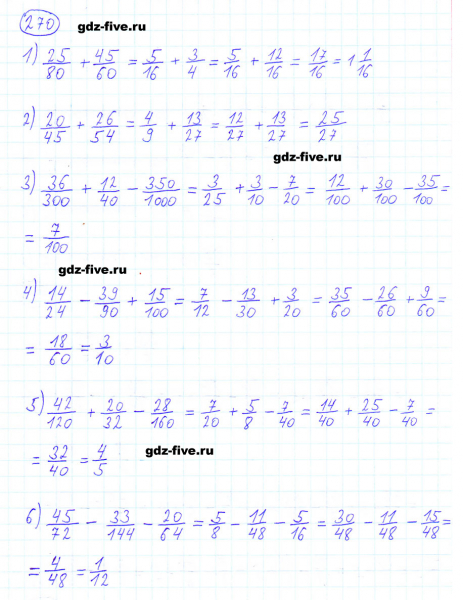 270 gdz-five.ru
1) 25/80 + 45/60 = 5/16 + 3/4 = 5/16 + 12/16 = 17/16 = 1 1/16
2) 20/45 + 26/54 = 4/9 + 13/27 = 12/27 + 13/27 = 25/27
gdz-five.ru
3) 36/300 + 12/40 - 350/1000 = 3/25 + 3/10 - 7/20 = 12/100 + 30/100 - 35/100 =
= 7/100
gdz-five.ru
4) 14/24 - 39/90 + 15/100 = 7/12 - 13/30 + 3/20 = 35/60 - 26/60 + 9/60 =
= 18/60 = 3/10
5) 42/120 + 20/32 - 28/160 = 7/20 + 5/8 - 7/40 = 14/40 + 25/40 - 7/40 =
= 32/40 = 4/5
gdz-five.ru
6) 45/72 - 33/144 - 20/64 = 5/8 - 11/48 - 5/16 = 30/48 - 11/48 - 15/48 =
= 4/48 = 1/12